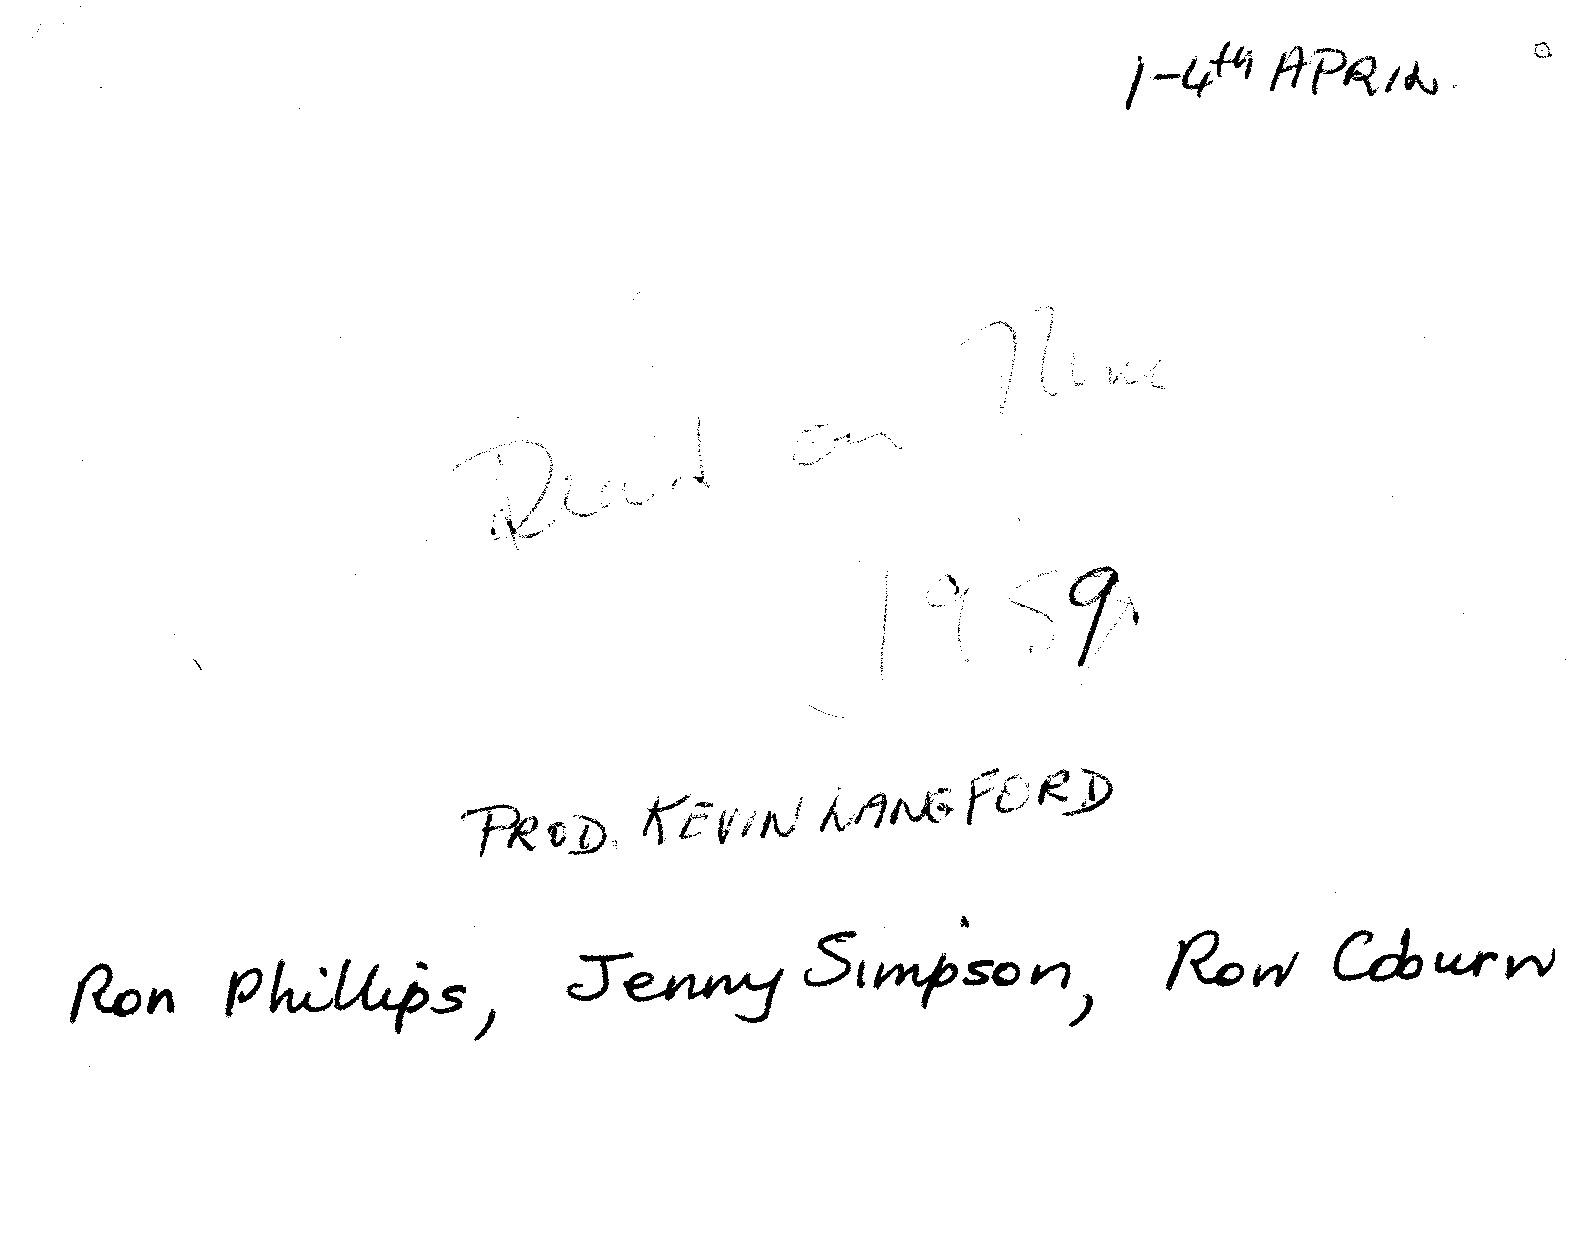 1-4th APRIL.
Dead on Nine
1959
PROD. KEVIN LANGFORD
Ron Phillips, Jenny Simpson, Ron Coburn